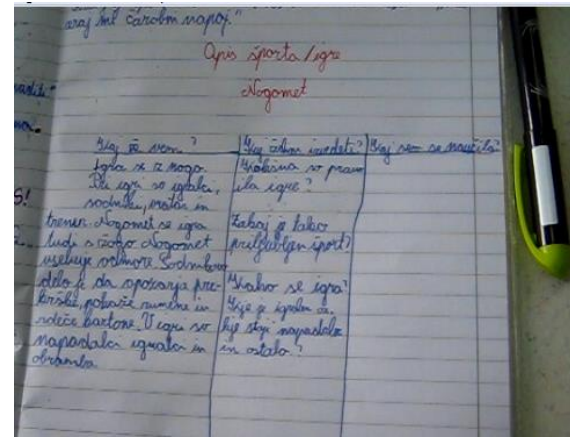 araj mi čarobni napoj."
Opis športa/igre
Nogomet
Kaj že vem?
Igra se z nogo.
Pri igri so igralci,
sodniki, vratar in
trener. Nogomet se igra
tudi s žogo. Nogomet
vsebuje odmore. Sodnikovo
delo je da opozarja pre-
krške, pokaže rumene in
rdeče kartone. V igri so
napadalci igralci in
obramba.
Kaj želim izvedeti?
Kakšna so prav
ila igre?
Zakaj je tako
priljubljen šport?
Kako se igra?
Kje je igralec oz.
kje stoji napadalec
in ostalo?
Kaj sem se naučila?
S!